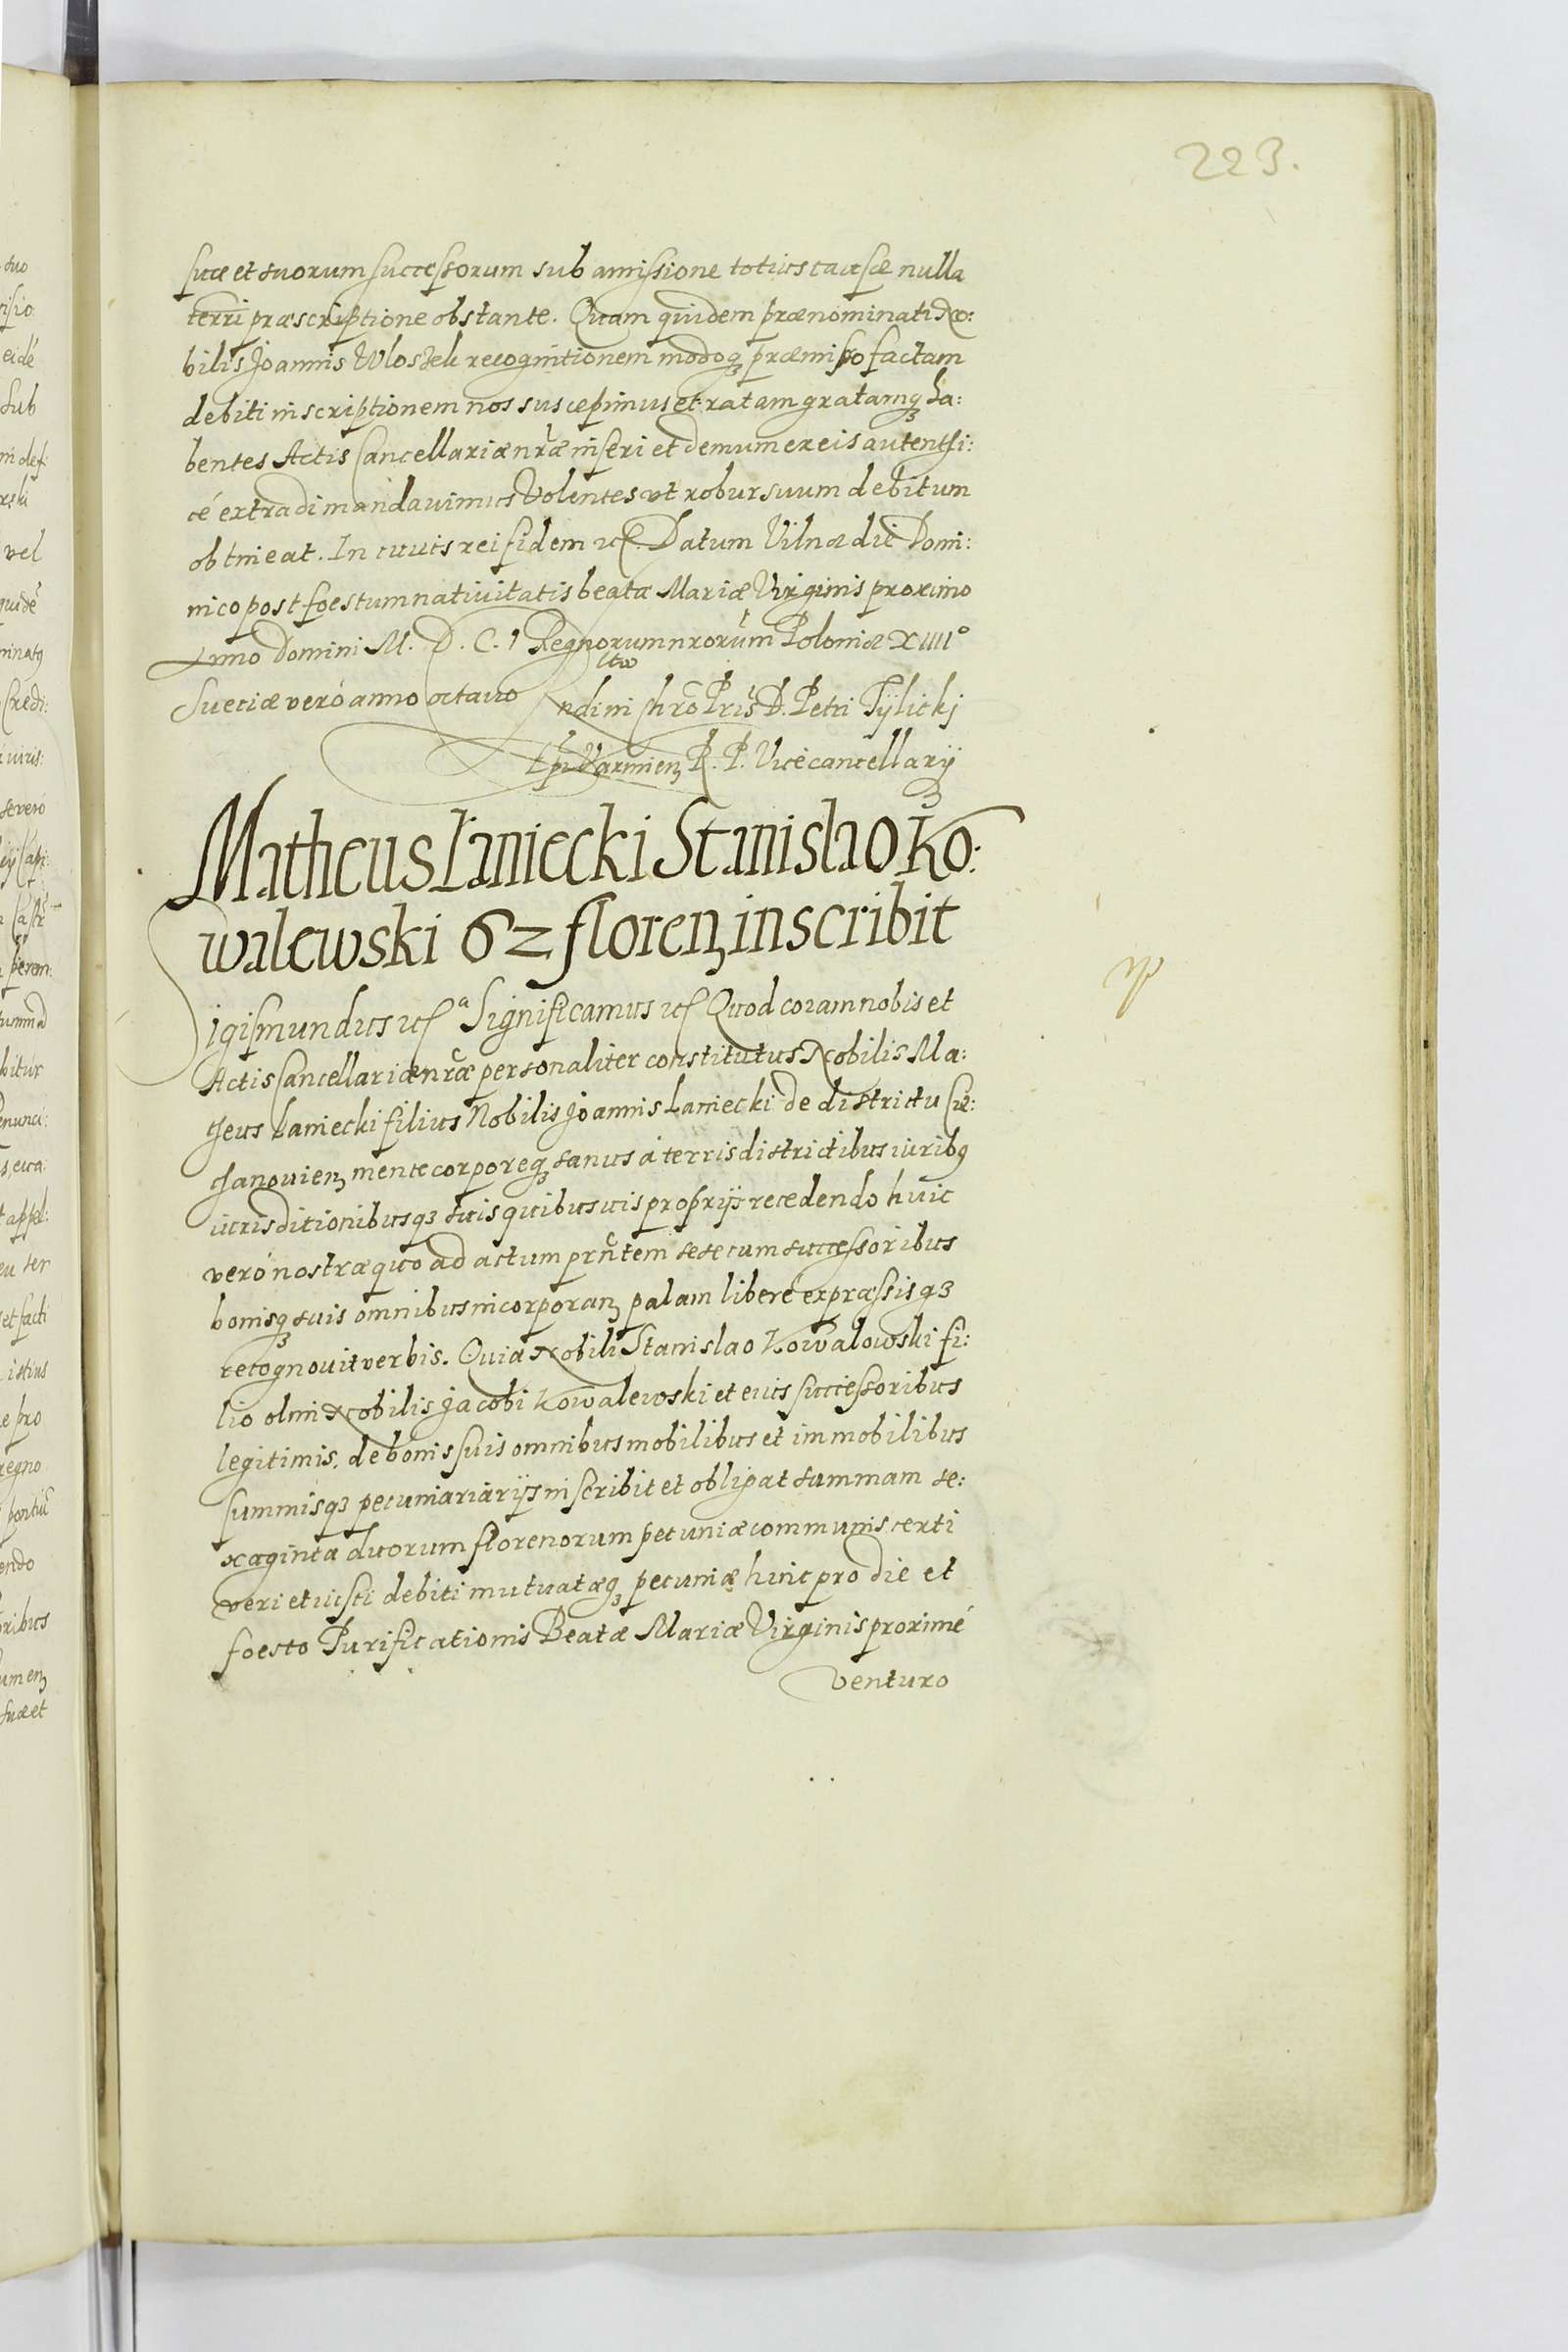 223.
suæ et suorum successorum sub amissione totius causæ nulla
terri præscriptione obstante. Quam quidem prænominati No:
bilis Joannis Wlostek recognitionem modoq₃ præmisso factam
debiti inscriptionem nos suscepimus et ratam gratamq₃ ha:
bentes Actis Cancellariæ nræ inseri et demum ex eis autenthi:
cé extradi mandavimus Volentes vt robur suum debitum
obtineat. In cuius rei fidem etc. Datum Vilnæ die Domi:
nico post foestum nativitatis beatæ Mariæ Virginis proximo
Anno Domini M. D. C. 1 Regnorum nrorum Poloniæ XIIII°
Sueciæ veró anno octavo
ndi in Chro Pris D. Petri Tÿlickj
Epi Varmien₃ R. P. Vicecancellarÿ
Matheus Łaniecki Stanislao Ko:
walewski 62 floren₃ inscribit
Sigismundus etc a Significamus etc Quod coram nobis et
Actis Cancellariæ nræ personaliter constitutus Nobilis Ma:
theus Laniecki filius Nobilis Joannis Laniecki de districtu Cie:
chanovien₃ mente corporeq₃ sanus á terris districtibus iuribꝯ
iurisditionibusq₃ suis quibusuis proprijs recedendo huic
veró nostræ quo ad actum prntem sese cum successoribus
bonisq₃ suis omnibus incorporan₃ palam liberé expræssisq₃
recognovit verbis. Quia Nobili Stanislao Kowalowski fi:
lio olim Nobilis Jacobi Kowalewski et eius successoribus
legitimis, de bonis suis omnibus mobilibus et immobilibus
summisq₃ pecuniariarijs inscribit et obligat summam se:
xaginta duorum florenorum pecuniæ communis certi
veri et iusti debiti mutuatæq₃ pecuniæ hinc pro die et
foesto Purificationis Beatæ Mariæ Virginis proximé
venturo